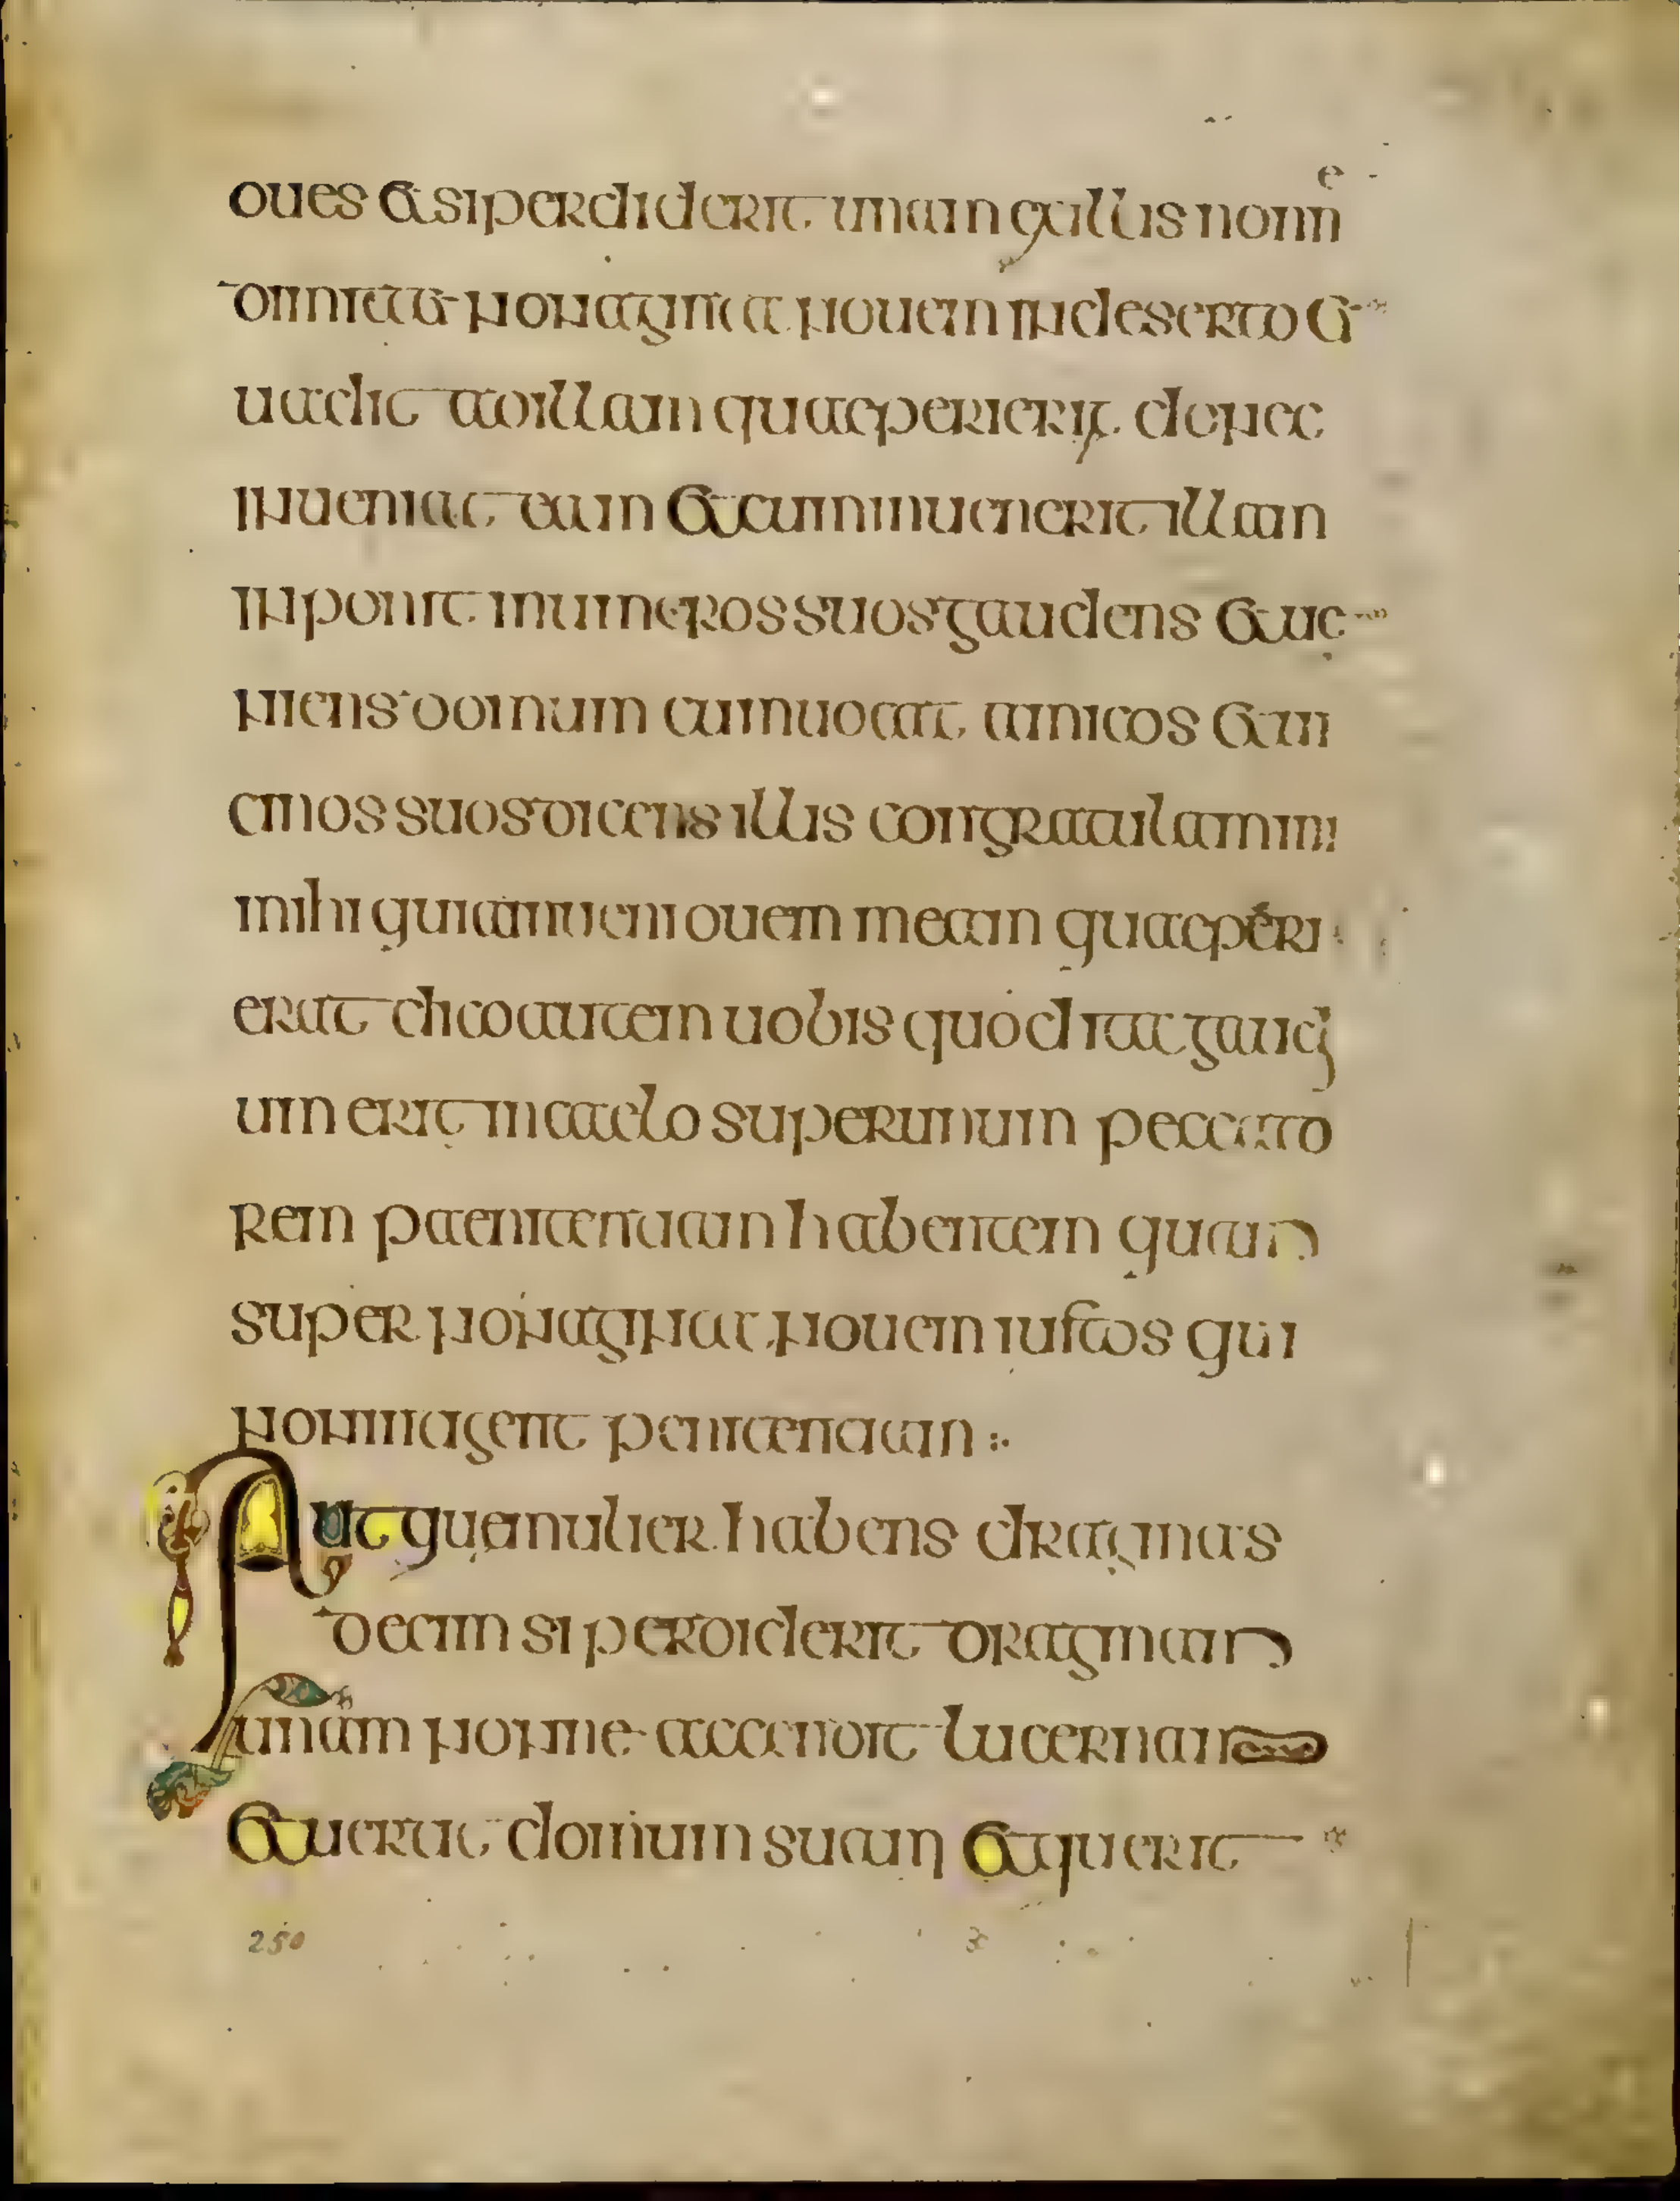 oues et si perdiderit unam ex illis nonne
dimittit nonaginta nouem in deserto et
uadit ad illam quae perierit donec
inueniat eam et cum inuenerit illam
inponit in umeros suos gaudens et ue
niens domum conuocat amicos et ui
cinos suos dicens illis congratulamini
mihi quia inueni ouem meam quae peri
erat dico autem uobis quod ita gaudi
um erit in caelo super unum peccato
rem paenitentiam habentem quam
super nonaginta nouem iustos qui
non indigent penitentiam :·
Aut quae mulier habens dragmas
decim si perdiderit dragmam
unam nonne accendit lucernam
et uerrit domum suam et querit
250